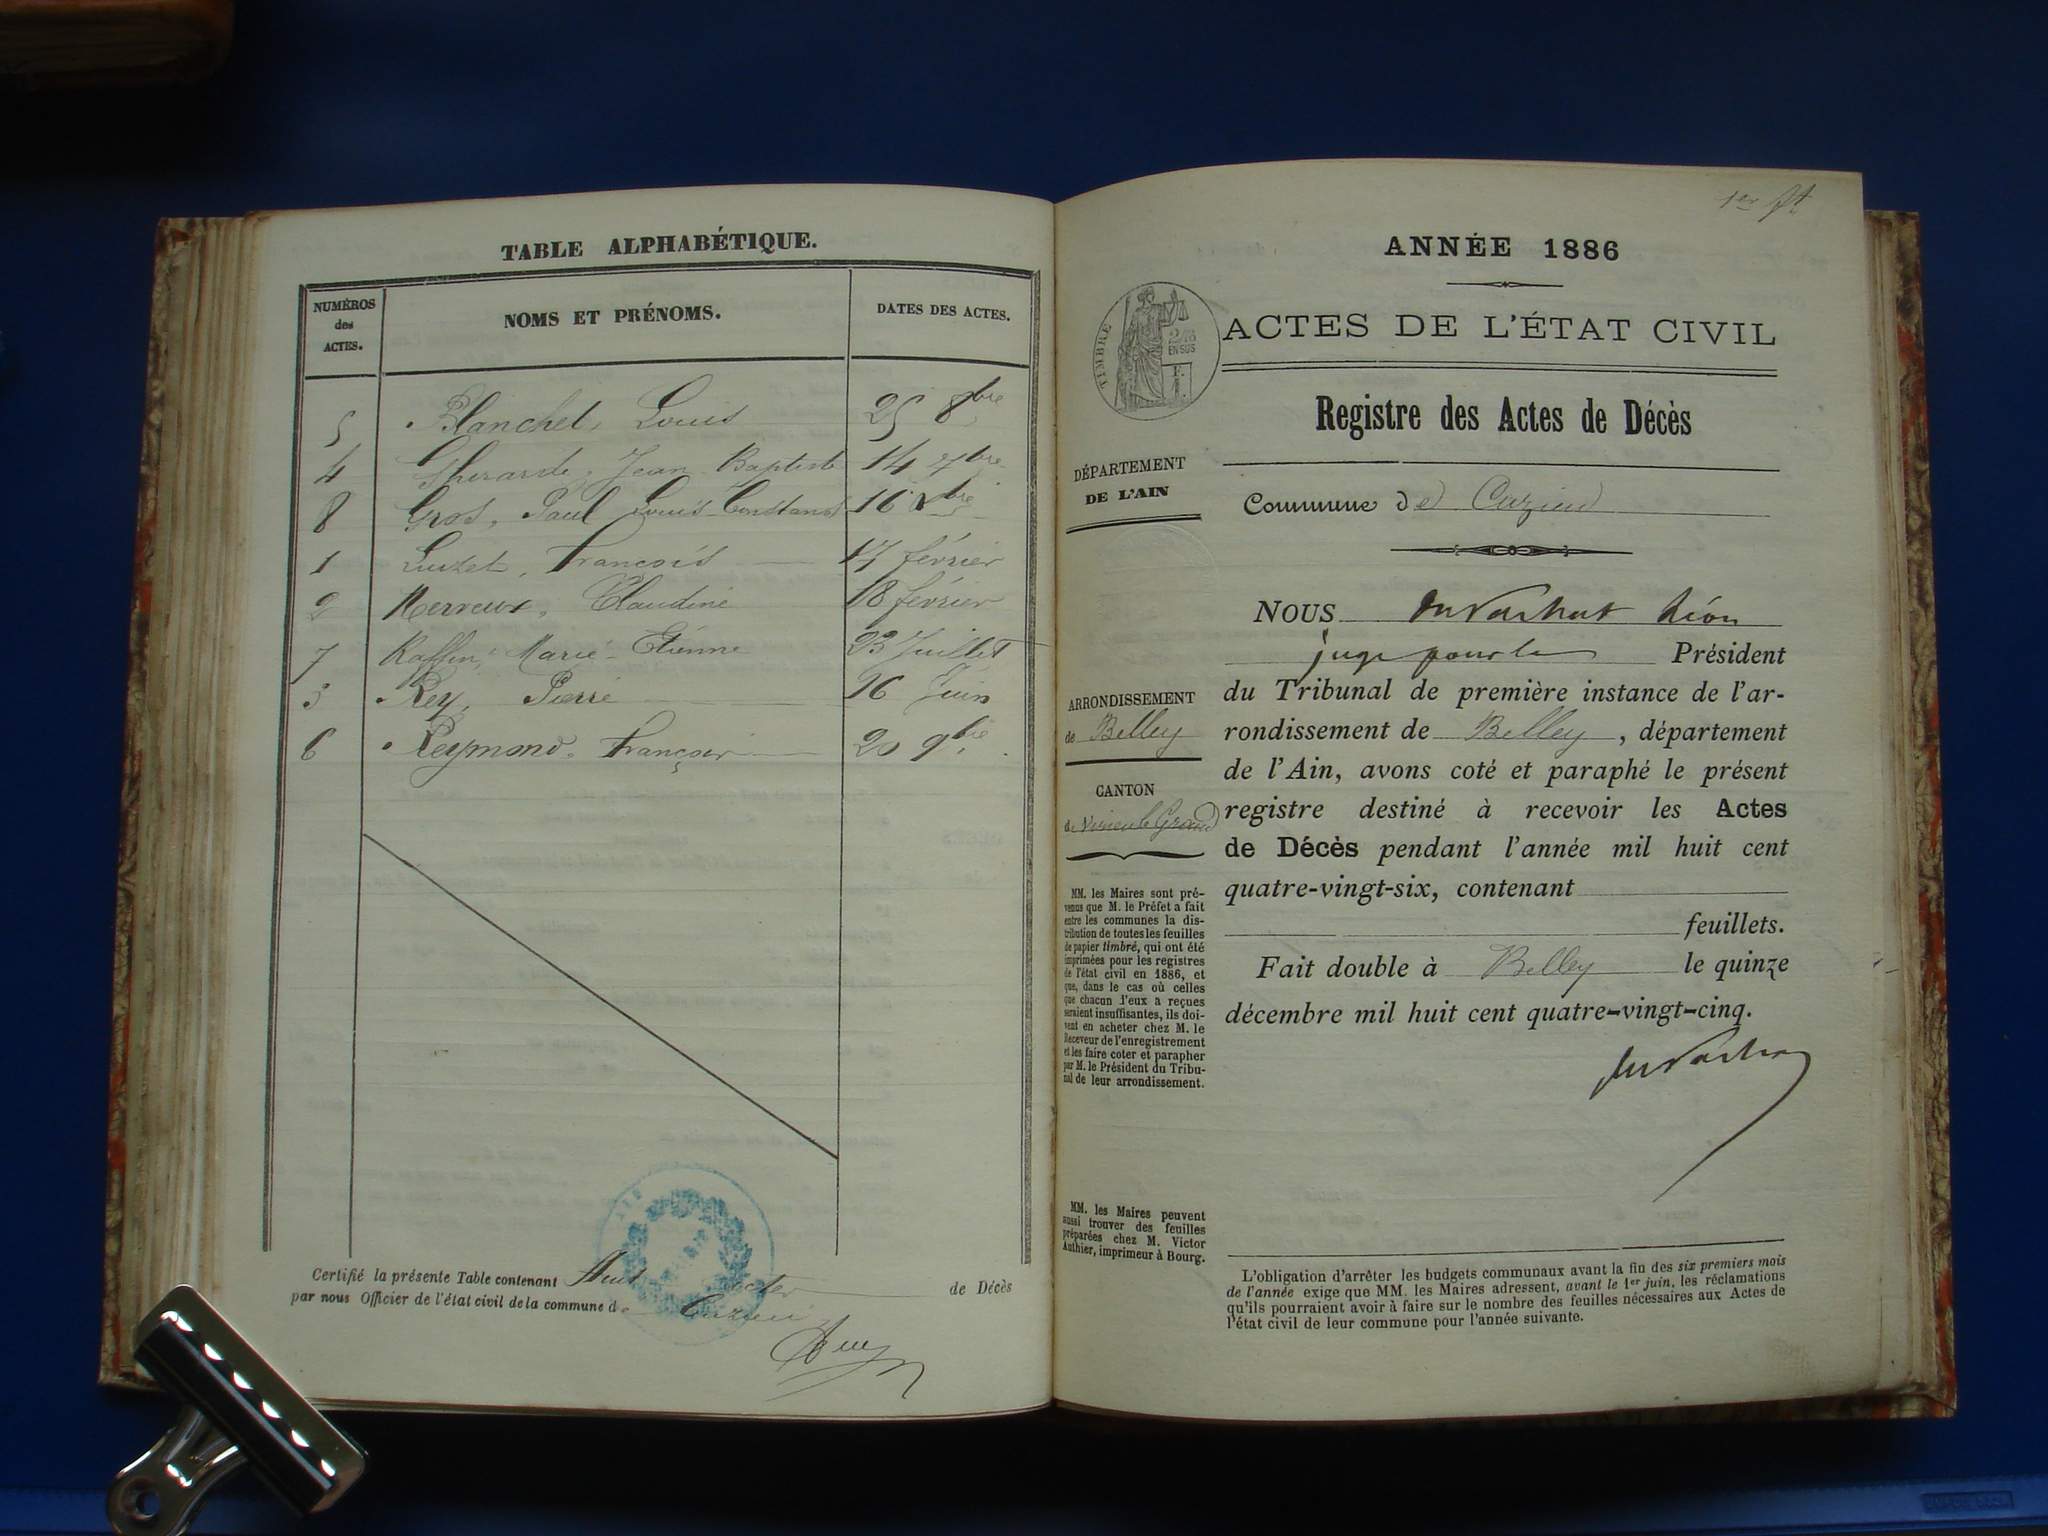 TABLE ALPHABÉTIQUE.
NUMÉROS des ACTES.
NOMS ET PRÉNOMS.
DATES DES ACTES.
5 Blanchet, Louis 25 8bre
4 Gherarde, Jean Baptiste 14 7bre
8 Gros, Paul Louis Constant 16 Xbre
1 Luizet, François 17 février
2 Merveux, Claudine 18 février
7 Raffin, Marie Etienne 23 Juillet
3 Rey, Pierre 26 Juin
6 Reymond, François 20 9bre
Certifié la présente Table contenant actes de Décès
par nous Officier de l'état civil de la commune de Cuzieu
1er ft
ANNÉE 1886
TIMBRE
2/10
EN SUS
ACTES DE L'ÉTAT CIVIL
Registre des Actes de Décès
DÉPARTEMENT
DE L'AIN
Commune de Cuzieu
NOUS Léon
juge pour le Président
du Tribunal de première instance de l'ar-
rondissement de Belley, département
de l'Ain, avons coté et paraphé le présent
registre destiné à recevoir les Actes
de Décès pendant l'année mil huit cent
quatre-vingt-six, contenant
feuillets.
Fait double à Belley le quinze
décembre mil huit cent quatre-vingt-cinq.
ARRONDISSEMENT
de Belley
CANTON
de Virieu le Grand
MM. les Maires sont pré-
venus que M. le Préfet a fait
entre les communes la dis-
tribution de toutes les feuilles
de papier timbré, qui ont été
imprimées pour les registres
de l'état civil en 1886, et
que, dans le cas où celles
que chacun d'eux a reçues
seraient insuffisantes, ils doi-
vent en acheter chez M. le
Receveur de l'enregistrement
et les faire coter et parapher
par M. le Président du Tribu-
nal de leur arrondissement.
MM. les Maires peuvent
aussi trouver des feuilles
préparées chez M. Victor
Authier, imprimeur à Bourg.
L'obligation d'arrêter les budgets communaux avant la fin des six premiers mois
de l'année exige que MM. les Maires adressent, avant le 1er juin, les réclamations
qu'ils pourraient avoir à faire sur le nombre des feuilles nécessaires aux Actes de
l'état civil de leur commune pour l'année suivante.